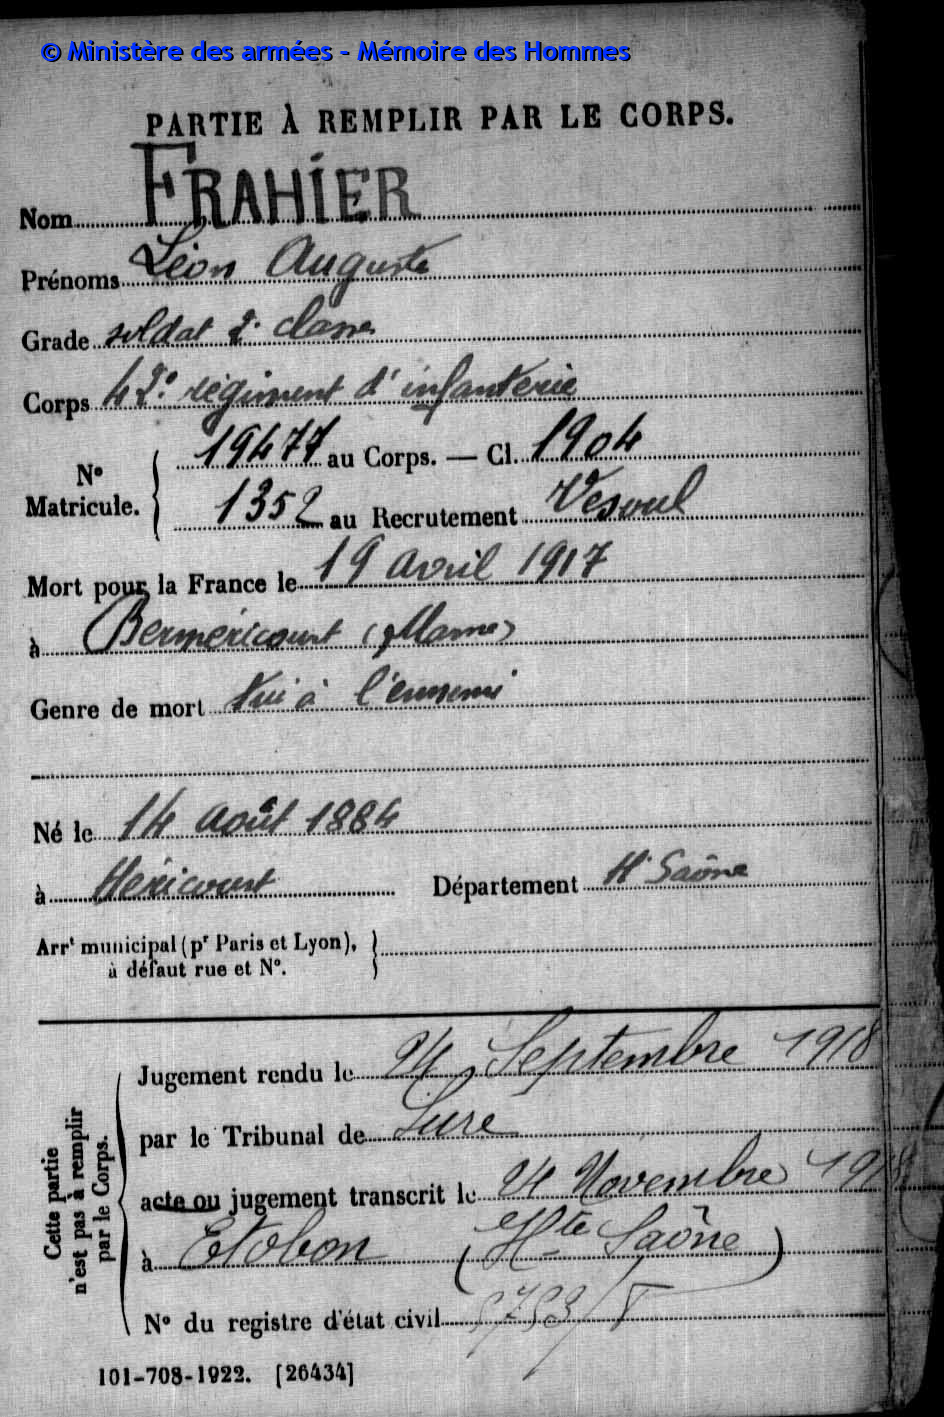 © Ministère des armées - Mémoire des Hommes
PARTIE À REMPLIR PAR LE CORPS.
Nom FRAHIER
Prénoms Léon Auguste
Grade soldat 2e classe
Corps 42e régiment d'infanterie
N° Matricule. { 19477 au Corps. — Cl. 1904
1352 au Recrutement Vesoul
Mort pour la France le 19 avril 1917
à Berméricourt (Marne)
Genre de mort Tué à l'ennemi
Né le 14 août 1884
à Héricourt Département Hte Saône
Arrt municipal (pr Paris et Lyon), }
à défaut rue et N°.
Cette partie n'est pas à remplir par le Corps.
Jugement rendu le 24 Septembre 1918
par le Tribunal de Lure
acte ou jugement transcrit le 24 Novembre 1918
à Etobon (Hte Saône)
N° du registre d'état civil
101-708-1922. [26434]